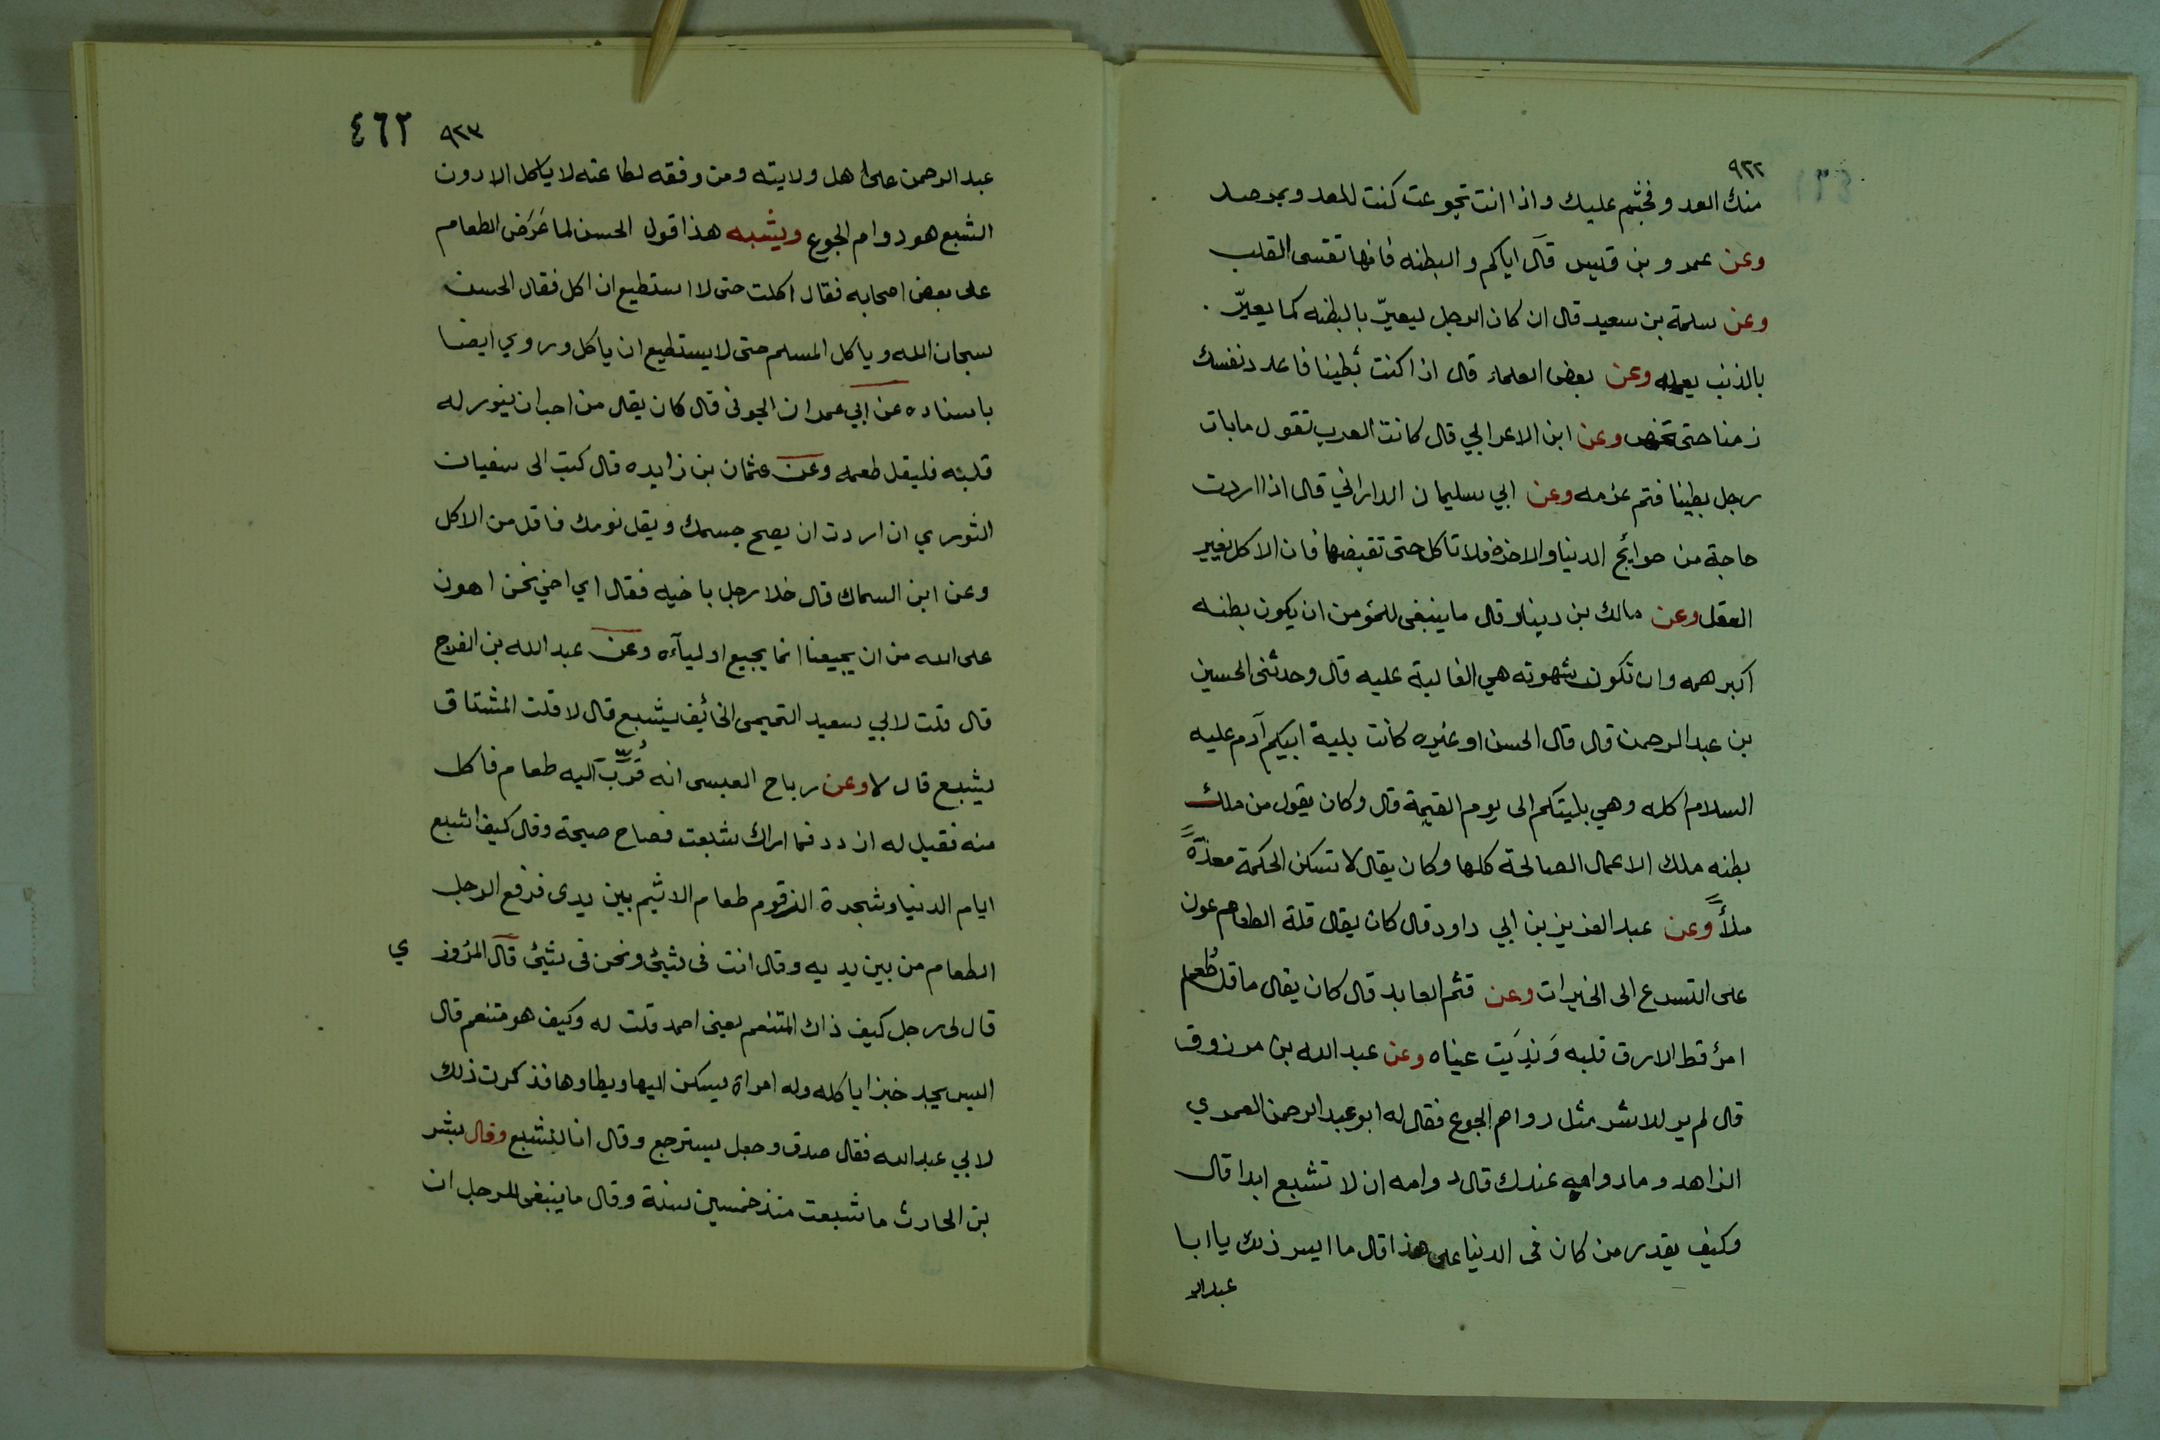 ٩٢٢
منك العدو فجثم عليك واذا انت تجوعت كنت للعدو بمرصد
وعن عمرو بن قيس قال اياكم والبطنه فانها تقسى القلب
وعن سلمة بن سعيد قال ان كان الرجل ليعيّر بالبطنه كما يعيّر
بالذنب يعمله وعن بعض العلماء قال اذا كنت بطينا فاعدد نفسك
زمنا حتى تخمص وعن ابن الاعرابي قال كانت العرب تقول ما بات
رجل بطينا فتم عزمه وعن ابي سليمان الداراني قال اذا اردت
حاجة من حوايج الدنيا والاخرة فلا تاكل حتى تقيضها فان الاكل يغير
العقل وعن مالك بن دينار قال ما ينبغى للمؤمن ان يكون بطنه
اكبر همه وان تكون شهوته هي الغالبة عليه قال وحدثنى الحسين
بن عبد الرحمن قال قال الحسن او غيره كانت بلية ابيكم آدم عليه
السلام اكله وهي بليتكم الى يوم القيمة قال وكان يقول من ملك
بطنه ملك الاعمال الصالحة كلها وكان يقال لا تسكن الحكمة معدَّةً
ملأً وعن عبد العزيز بن ابي داود قال كان يقال قلة الطعام عون
على التسرع الى الخيرات وعن قثم العابد قال كان يقال ما قل طُعم
امرؤ قط الا رق قلبه وَنَدِيَت عيناه وعن عبد الله بن مرزوق
قال لم ير للاشر مثل دوام الجوع فقال له ابو عبد الرحمن العمري
الزاهد وما دوامه عندك قال دوامه ان لا تشبع ابدا قال
وكيف يقدر من كان فى الدنيا على هذا قال ما ايسر ذلك يا ابا
عبد الر
٩٢٣
٤٦٢
عبد الرحمن على اهل ولايته ومن وفقه لطاعته لا ياكل الا دون
الشبع هو دوام الجوع ويشبه هذا قول الحسن لما عَرَض الطعام
على بعض اصحابه فقال اكلت حتى لا استطيع ان اكل فقال الحسن
سبحان الله وياكل المسلم حتى لا يستطيع ان ياكل وروي ايضا
باسناده عن ابي عمران الجونى قال كان يقال من احب ان ينور له
قلبه فليقل طعمه وعن عثمان بن زايده قال كتب الى سفيان
الثوري ان اردت ان يصح جسمك ويقل نومك فاقل من الاكل
وعن ابن السماك قال خلا رجل باخيه فقال اي اخي نحن اهون
على الله من ان يجيعنا انما يجيع اوليآءه وعن عبد الله بن الفرج
قال قلت لابي سعيد التميمى الخائف يشبع قال لا قلت المشتاق
يشبع قال لا وعن رباح العبسى انه قُرِّبَ اليه طعام فاكل
منه فقيل له ازدد فما اراك شبعت فصاح صيحة وقال كيف اشبع
ايام الدنيا وشجرة الزقوم طعام الاثيم بين يدى فرفع الرجل
الطعام من بين يديه وقال انت فى شئ ونحن فى شئ قال المرّوز
ي
قال لى رجل كيف ذاك المتنعم يعنى احمد قلت له وكيف هو متنعم قال
اليس يجد خبزا ياكله وله امراة يسكن اليها ويطاوها فذكرت ذلك
لابي عبد الله فقال صدق وجعل يسترجع وقال انا لنشبع وقال بشر
بن الحارث ما شبعت منذ خمسين سنة وقال ما ينبغى للرجل ان